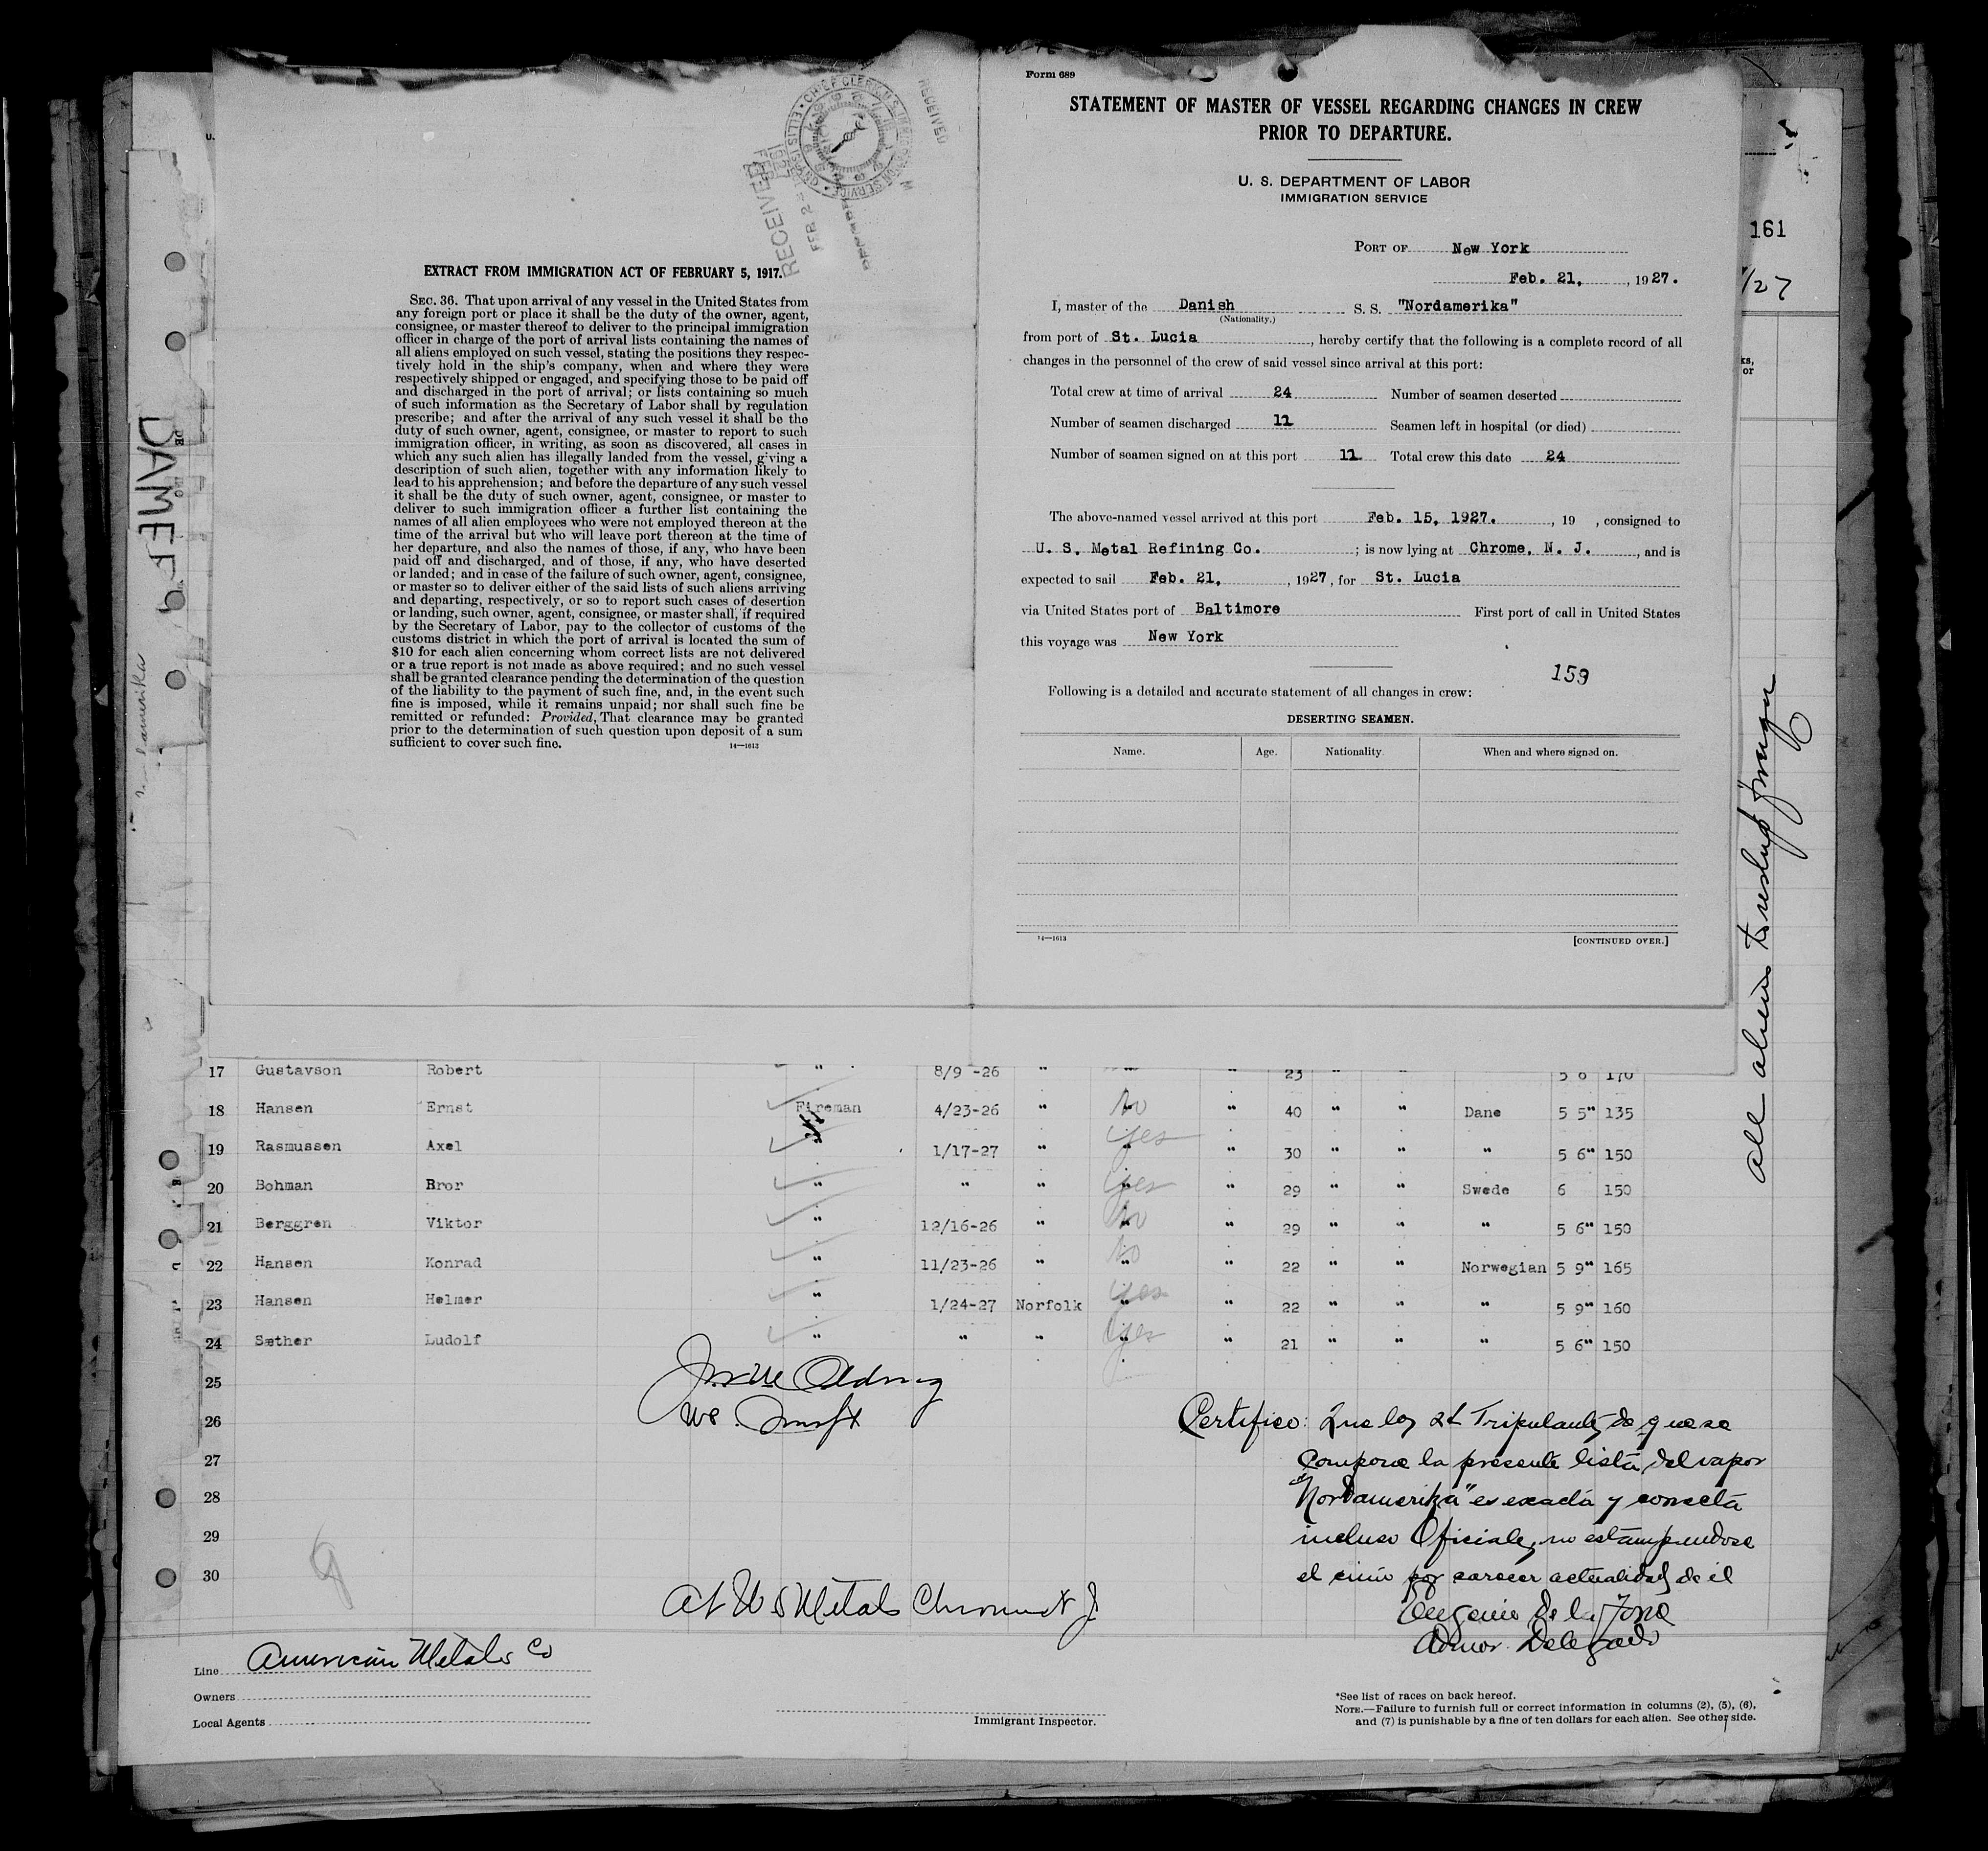 EXTRACT FROM IMMIGRATION ACT OF FEBRUARY 5, 1917.
SEC. 36. That upon arrival of any vessel in the United States from
any foreign port or place it shall be the duty of the owner, agent,
consignee, or master thereof to deliver to the principal immigration
officer in charge of the port of arrival lists containing the names of
all aliens employed on such vessel, stating the positions they respec-
tively hold in the ship's company, when and where they were
respectively shipped or engaged, and specifying those to be paid off
and discharged in the port of arrival; or lists containing so much
of such information as the Secretary of Labor shall by regulation
prescribe; and after the arrival of any such vessel it shall be the
duty of such owner, agent, consignee, or master to report to such
immigration officer, in writing, as soon as discovered, all cases in
which any such alien has illegally landed from the vessel, giving a
description of such alien, together with any information likely to
lead to his apprehension; and before the departure of any such vessel
it shall be the duty of such owner, agent, consignee, or master to
deliver to such immigration officer a further list containing the
names of all alien employees who were not employed thereon at the
time of the arrival but who will leave port thereon at the time of
her departure, and also the names of those, if any, who have been
paid off and discharged, and of those, if any, who have deserted
or landed; and in case of the failure of such owner, agent, consignee,
or master so to deliver either of the said lists of such aliens arriving
and departing, respectively, or so to report such cases of desertion
or landing, such owner, agent, consignee, or master shall, if required
by the Secretary of Labor, pay to the collector of customs of the
customs district in which the port of arrival is located the sum of
$10 for each alien concerning whom correct lists are not delivered
or a true report is not made as above required; and no such vessel
shall be granted clearance pending the determination of the question
of the liability to the payment of such fine, and, in the event such
fine is imposed, while it remains unpaid; nor shall such fine be
remitted or refunded: Provided, That clearance may be granted
prior to the determination of such question upon deposit of a sum
sufficient to cover such fine. 14—1613
RECEIVED
RECEIVED
Form 689
STATEMENT OF MASTER OF VESSEL REGARDING CHANGES IN CREW
PRIOR TO DEPARTURE.
U. S. DEPARTMENT OF LABOR
IMMIGRATION SERVICE
PORT OF New York
Feb. 21, , 1927.
I, master of the Danish S. S. "Nordamerika"
(Nationality.)
from port of St. Lucia , hereby certify that the following is a complete record of all
changes in the personnel of the crew of said vessel since arrival at this port:
Total crew at time of arrival 24 Number of seamen deserted
Number of seamen discharged 11 Seamen left in hospital (or died)
Number of seamen signed on at this port 11 Total crew this date 24
The above-named vessel arrived at this port Feb. 15, 1927. , 19 , consigned to
U. S. Metal Refining Co. ; is now lying at Chrome, N. J. , and is
expected to sail Feb. 21, , 1927, for St. Lucia
via United States port of Baltimore First port of call in United States
this voyage was New York
159
Following is a detailed and accurate statement of all changes in crew:
DESERTING SEAMEN.
Name. Age. Nationality. When and where signed on.
14—1613 [CONTINUED OVER.]
161
/27
All aliens to reship foreign
17 Gustavson Robert " 8/9 -26 " " 23 " " 5 6 170
18 Hansen Ernst Fireman 4/23-26 " No " 40 " " Dane 5 5" 135
19 Rasmussen Axel 1/17-27 " Yes " 30 " " " 5 6" 150
20 Bohman Bror " " " Yes " 29 " " Swede 6 150
21 Berggren Viktor " 12/16-26 " No " 29 " " " 5 6" 150
22 Hansen Konrad " 11/23-26 " No " 22 " " Norwegian 5 9" 165
23 Hansen Helmer " 1/24-27 Norfolk Yes " 22 " " " 5 9" 160
24 Sæther Ludolf " " " Yes " 21 " " " 5 6" 150
25
26
27
28
29
30
Certifico: Que los 24 Tripulantes de que se
compone la presente lista del vapor
"Nordamerika" es exacta y correcta
incluso Oficiales, no estampandose
el por carecer actualidad de el
Eugenio de la
Admor. Delegado
At U S Metals Chrome N J.
Line American Metals Co
Owners
Local Agents
Immigrant Inspector.
*See list of races on back hereof.
NOTE.—Failure to furnish full or correct information in columns (2), (5), (6),
and (7) is punishable by a fine of ten dollars for each alien. See other side.